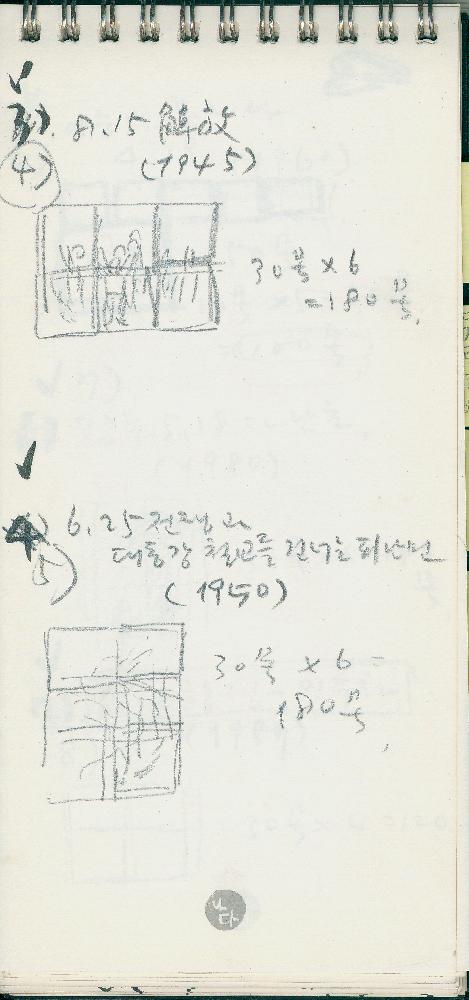 ✓
4) 8.15 解放
(1945)
30호 x 6
=180호.
✓
5) 6.25전쟁과
대동강 철교를 건너는 피난민
(1950)
30호 x 6 =
180호,
나다